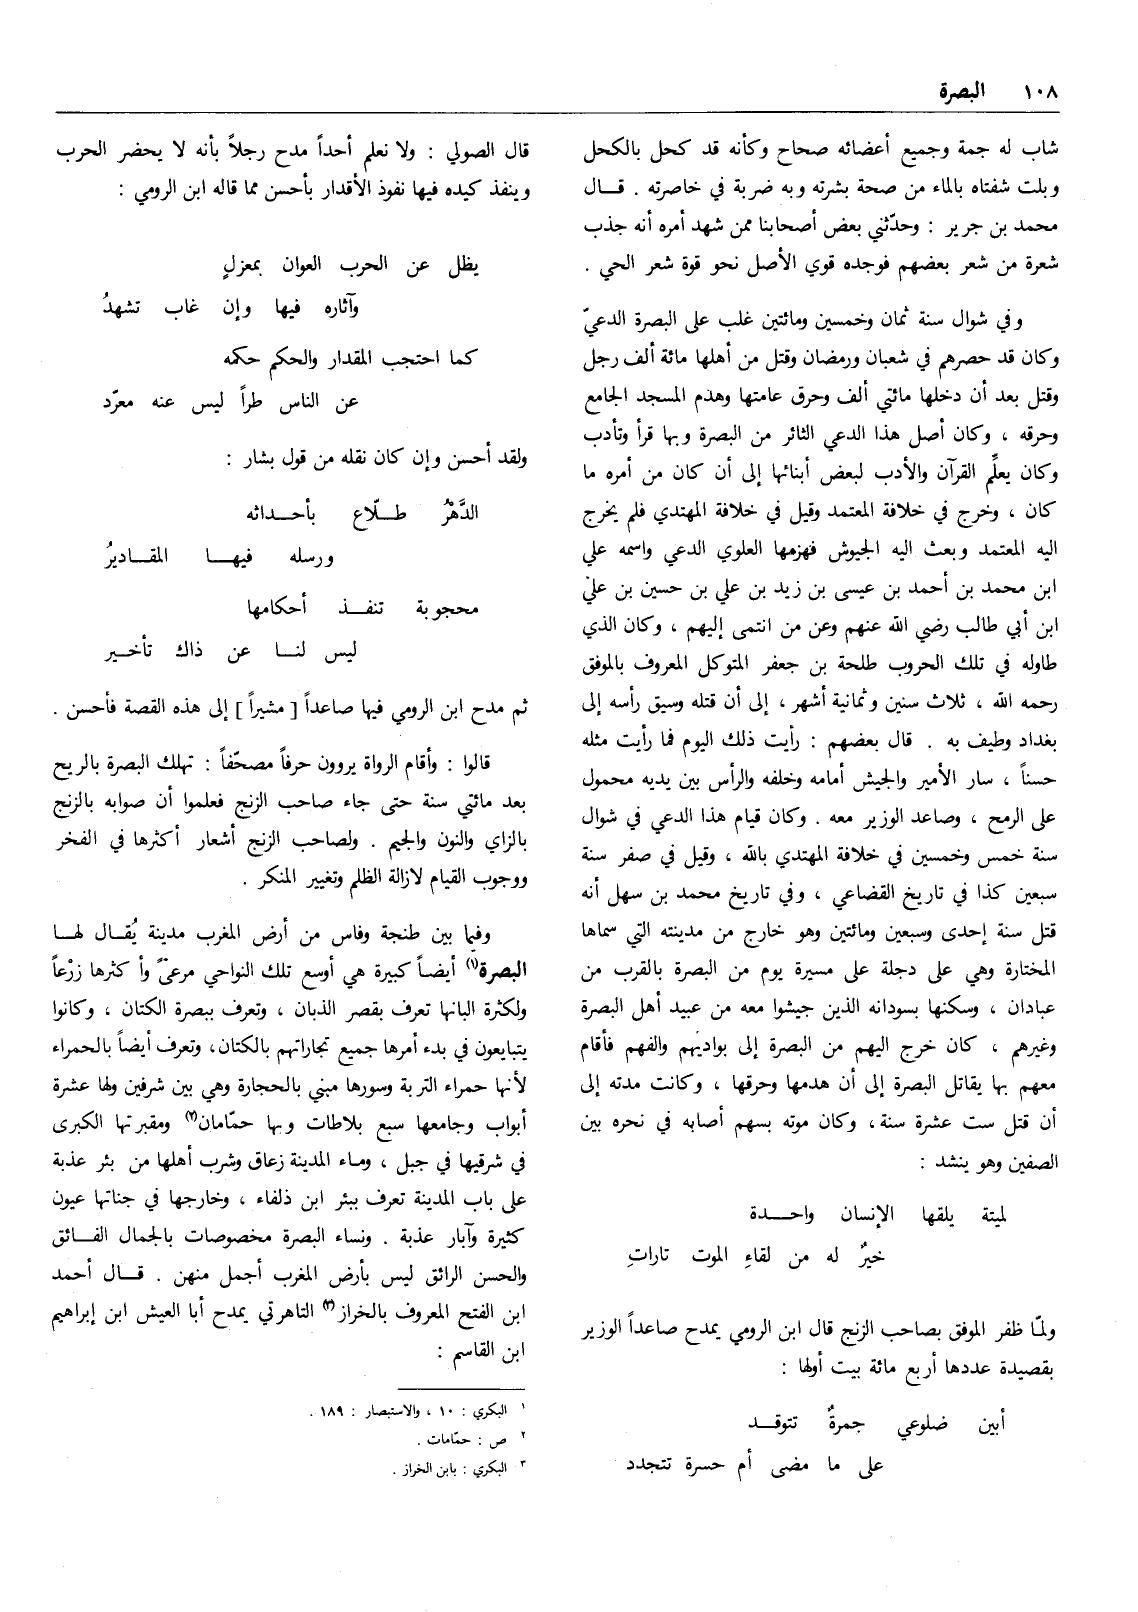 ١٠٨ البصرة
شاب له جمة وجميع أعضائه صحاح وكأنه قد كحل بالكحل
وبلت شفتاه بالماء من صحة بشرته وبه ضربة في خاصرته . قـــال
محمد بن جرير : وحدّثني بعض أصحابنا ممن شهد أمره أنه جذب
شعرة من شعر بعضهم فوجده قوي الأصل نحو قوة شعر الحي .
وفي شوال سنة ثمان وخمسين ومائتين غلب على البصرة الدعيّ
وكان قد حصرهم في شعبان ورمضان وقتل من أهلها مائة ألف رجل
وقتل بعد أن دخلها مائتي ألف وحرق عامتها وهذم المسجد الجامع
وحرقه ، وكان أصل هذا الدعي الثائر من البصرة وبها قرأ وتأدب
وكان يعلِّم القرآن والأدب لبعض أبنائها إلى أن كان من أمره ما
كان ، وخرج في خلافة المعتمد وقيل في خلافة المهتدي فلم يخرج
اليه المعتمد وبعث اليه الجيوش فهزمها العلوي الدعي واسمه علي
ابن محمد بن أحمد بن عيسى بن زيد بن علي بن حسين بن علي
ابن أبي طالب رضي الله عنهم وعن من انتمى إليهم ، وكان الذي
طاوله في تلك الحروب طلحة بن جعفر المتوكل المعروف بالموفق
رحمه الله ، ثلاث سنين وثمانية أشهر ، إلى أن قتله وسيق رأسه إلى
بغداد وطيف به . قال بعضهم : رأيت ذلك اليوم فما رأيت مثله
حسناً ، سار الأمير والجيش أمامه وخلفه والرأس بين يديه محمول
على الرمح ، وصاعد الوزير معه . وكان قيام هذا الدعي في شوال
سنة خمس وخمسين في خلافة المهتدي بالله ، وقيل في صفر سنة
سبعين كذا في تاريخ القضاعي ، وفي تاريخ محمد بن سهل أنه
قتل سنة إحدى وسبعين ومائتين وهو خارج من مدينته التي سماها
المختارة وهي على دجلة على مسيرة يوم من البصرة بالقرب من
عبادان ، وسكنها بسودانه الذين جيشوا معه من عبيد أهل البصرة
وغيرهم ، كان خرج اليهم من البصرة إلى بواديهم والفهم فأقام
معهم بها يقاتل البصرة إلى أن هدمها وحرقها ، وكانت مدته إلى
أن قتل ست عشرة سنة ، وكان موته بسهم أصابه في نحره بين
الصفين وهو ينشد :
لميتة يلقها الإنسان واحـــدة
خيرٌ له من لقاءِ الموت تاراتِ
ولمّا ظفر الموفق بصاحب الزنج قال ابن الرومي يمدح صاعداً الوزير
بقصيدة عددها أربع مائة بيت أولها :
أبين ضلوعي جمرةٌ تتوقـــد
على ما مضى أم حسرة تتجدد
قال الصولي : ولا نعلم أحداً مدح رجلاً بأنه لا يحضر الحرب
وينفذ كيده فيها نفوذ الأقدار بأحسن مما قاله ابن الرومي :
يظل عن الحرب العوان بمعزلٍ
وآثاره فيها وإن غاب تشهدُ
كما احتجب المقدار والحكم حكمه
عن الناس طراً ليس عنه معرّد
ولقد أحسن وإن كان نقله من قول بشار :
الدَّهْرُ طـــلّاع بأحـــداثه
ورسله فيهـــا المقـــاديرُ
محجوبة تنفـــذ أحكامها
ليس لنـــا عن ذاك تأخـــير
ثم مدح ابن الرومي فيها صاعداً [ مشيراً ] إلى هذه القصة فأحسن .
قالوا : وأقام الرواة يروون حرفاً مصحّفاً : تهلك البصرة بالريح
بعد مائتي سنة حتى جاء صاحب الزنج فعلموا أن صوابه بالزنج
بالزاي والنون والجيم . ولصاحب الزنج أشعار أكثرها في الفخر
ووجوب القيام لازالة الظلم وتغيير المنكر .
وفيما بين طنجة وفاس من أرض المغرب مدينة يُقـــال لهـــا
البصرة(١) أيضـاً كبيرة هي أوسع تلك النواحي مرعىً وأكثرها زرْعاً
ولكثرة البانها تعرف بقصر الذبان ، وتعرف ببصرة الكتان ، وكانوا
يتبايعون في بدء أمرها جميع تجاراتهم بالكتان، وتعرف أيضاً بالحمراء
لأنها حمراء التربة وسورها مبني بالحجارة وهي بين شرفين ولها عشرة
أبواب وجامعها سبع بلاطات وبها حمّامان(٢) ومقبرتها الكبرى
في شرقيها في جبل ، ومـاء المدينة زعاق وشرب أهلها من بئر عذبة
على باب المدينة تعرف ببئر ابن ذلفاء ، وخارجها في جناتها عيون
كثيرة وآبار عذبة . ونساء البصرة مخصوصات بالجمال الفـــائق
والحسن الرائق ليس بأرض المغرب أجمل منهن . قـــال أحمد
ابن الفتح المعروف بالخراز(٣) التاهرتي يمدح أبا العيش ابن إبراهيم
ابن القاسم :
١ البكري : ١٠ ، والاستبصار : ١٨٩ .
٢ ص : حمّامات .
٣ البكري : بابن الخراز .